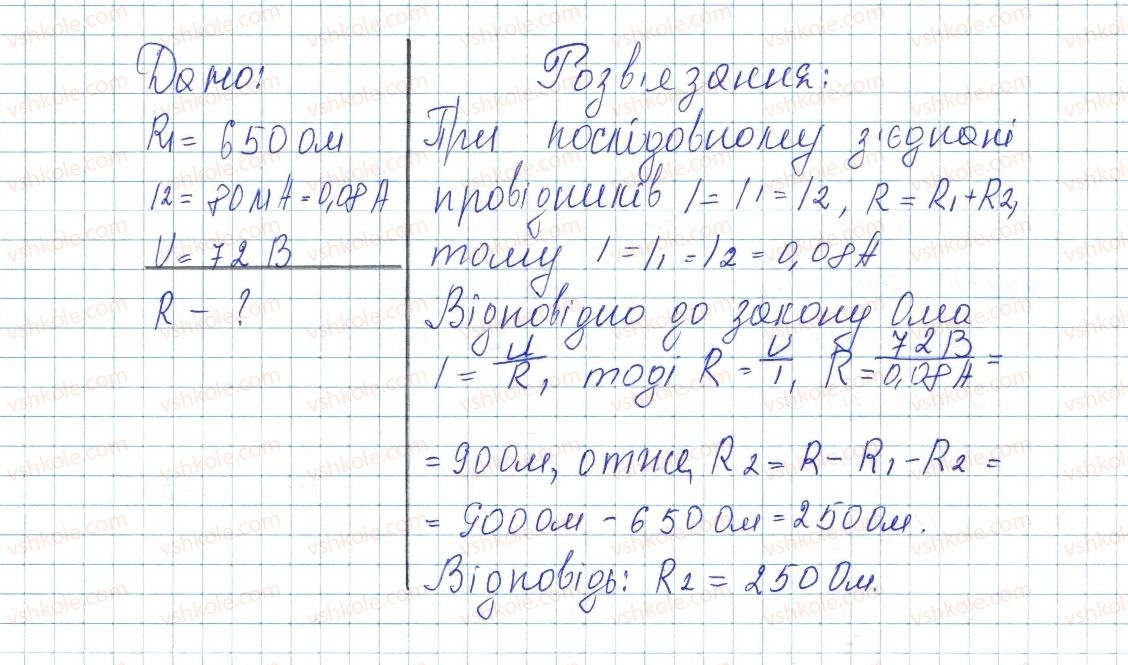 Дано:
R1 = 650 Ом
I2 = 80 мА = 0,08 А
U = 72 В
R - ?
Розв'язання:
При послідовному з'єднані
провідників I = I1 = I2, R = R1 + R2,
тому I = I1 = I2 = 0,08 А
Відповідно до закону Ома
I = U/R, тоді R = U/I, R = 72 В/0,08 А =
= 90 Ом, отже, R2 = R - R1 - R2 =
= 900 Ом - 650 Ом = 250 Ом.
Відповідь: R2 = 250 Ом.